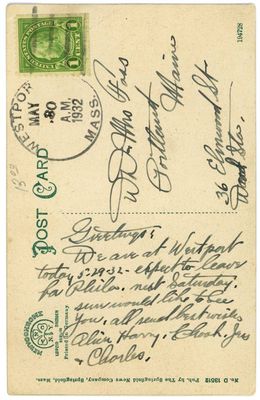 194728
UNITED STATES POSTAGE
1 CENT 1
WESTPORT
MAY
30
A.M.
1932
MASS.
Foss
Portland Maine
36 Elmwood St
POST CARD
Greetings
We are at Westport
today 5-29-32- expect to leave
for Phila. next Saturday.
sure would like to see
you, all send best wishes
Alice, Harry,
& Charles.
Printed in Germany
No. D 13512 Pub. by The Springfield News Company, Springfield, Mass.